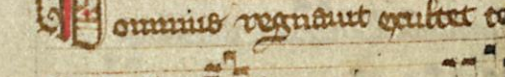 Dominus regnauit exultet te